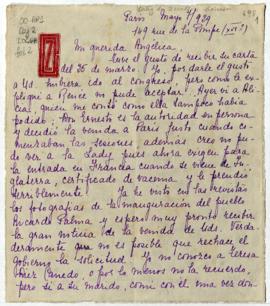 Paris Mayo 7/939
149 rue de la Pompe (XVIe)
Mi querida Angélica.
Tuve el gusto de recibir su carta
del 26 de marzo. Yo, por darle el gusto
a Ud. hubiera ido al congreso, pero como te ex-
pliqué a Renée no pude aceptar. Ayer vi a Ali-
cia, quien me contó como ella tampoco había
podido; Don Ernesto es la autoridad en persona
y decidió la venida a Paris justo cuando co-
menzaban las sesiones, además creo no pu-
do ver a la Lady pues ahora exigen para
la entrada en Francia cuando se viene de In-
glaterra, certificado de vacuna y le prendió
terriblemente. Ya he visto en las revistas
las fotografías de la inauguración del pueblo
Ricardo Palma y espero muy pronto recibir
la gran noticia de la venida de Uds. Verda-
deramente no es posible que rechace el
Gobierno la solicitud. Yo no conozco a Teresa
Diez Canedo, o por lo menos no la recuerdo,
pero si a su marido, comí con él una vez don-